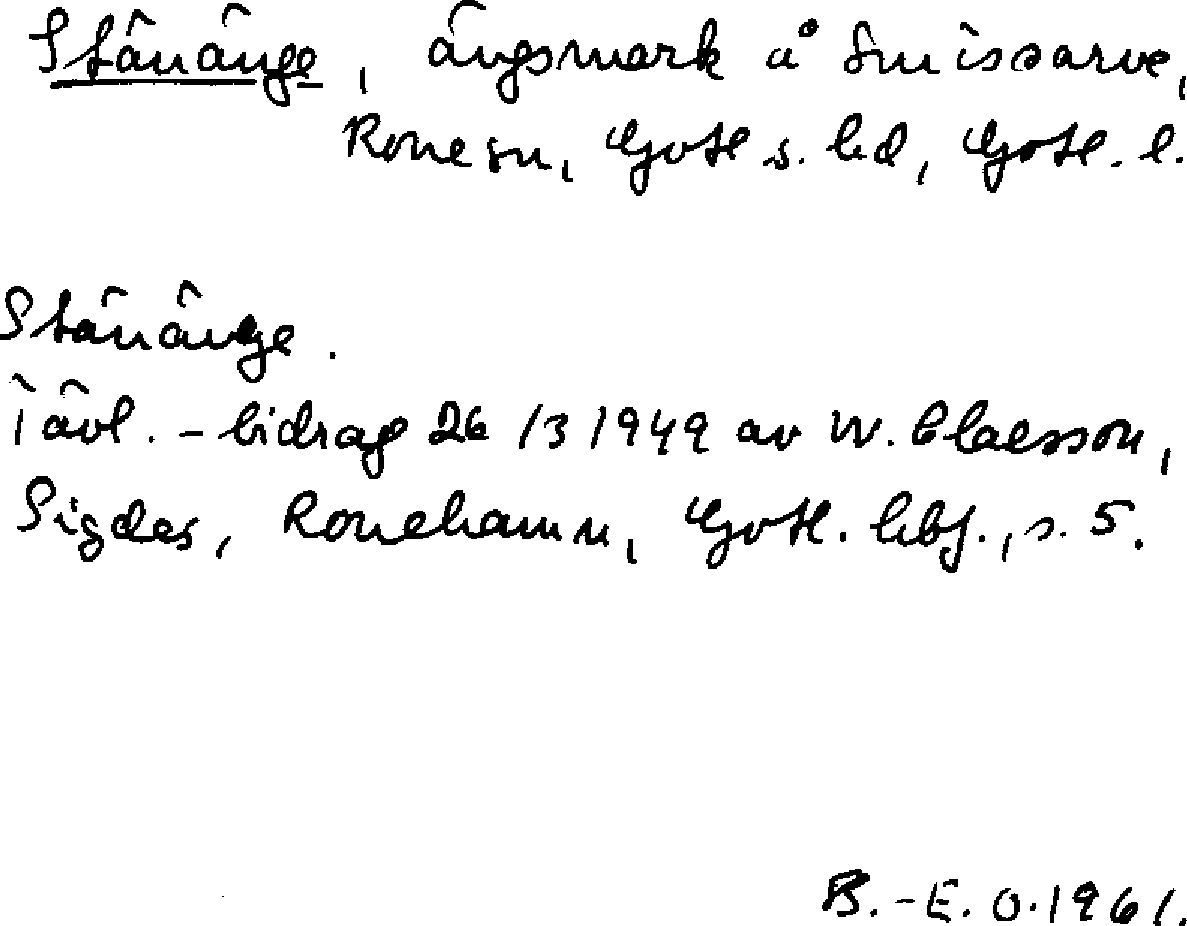 Stänänge, ängsmark å Smissarve,
Rone sn, Gotl s. hd, Gotl. l.
Stänänge.
Tävl. - bidrag 26/3 1949 av W. Claesson,
Sigdes, Ronehamn, Gotl. hbf., s. 5.
B.-E. O. 1961.